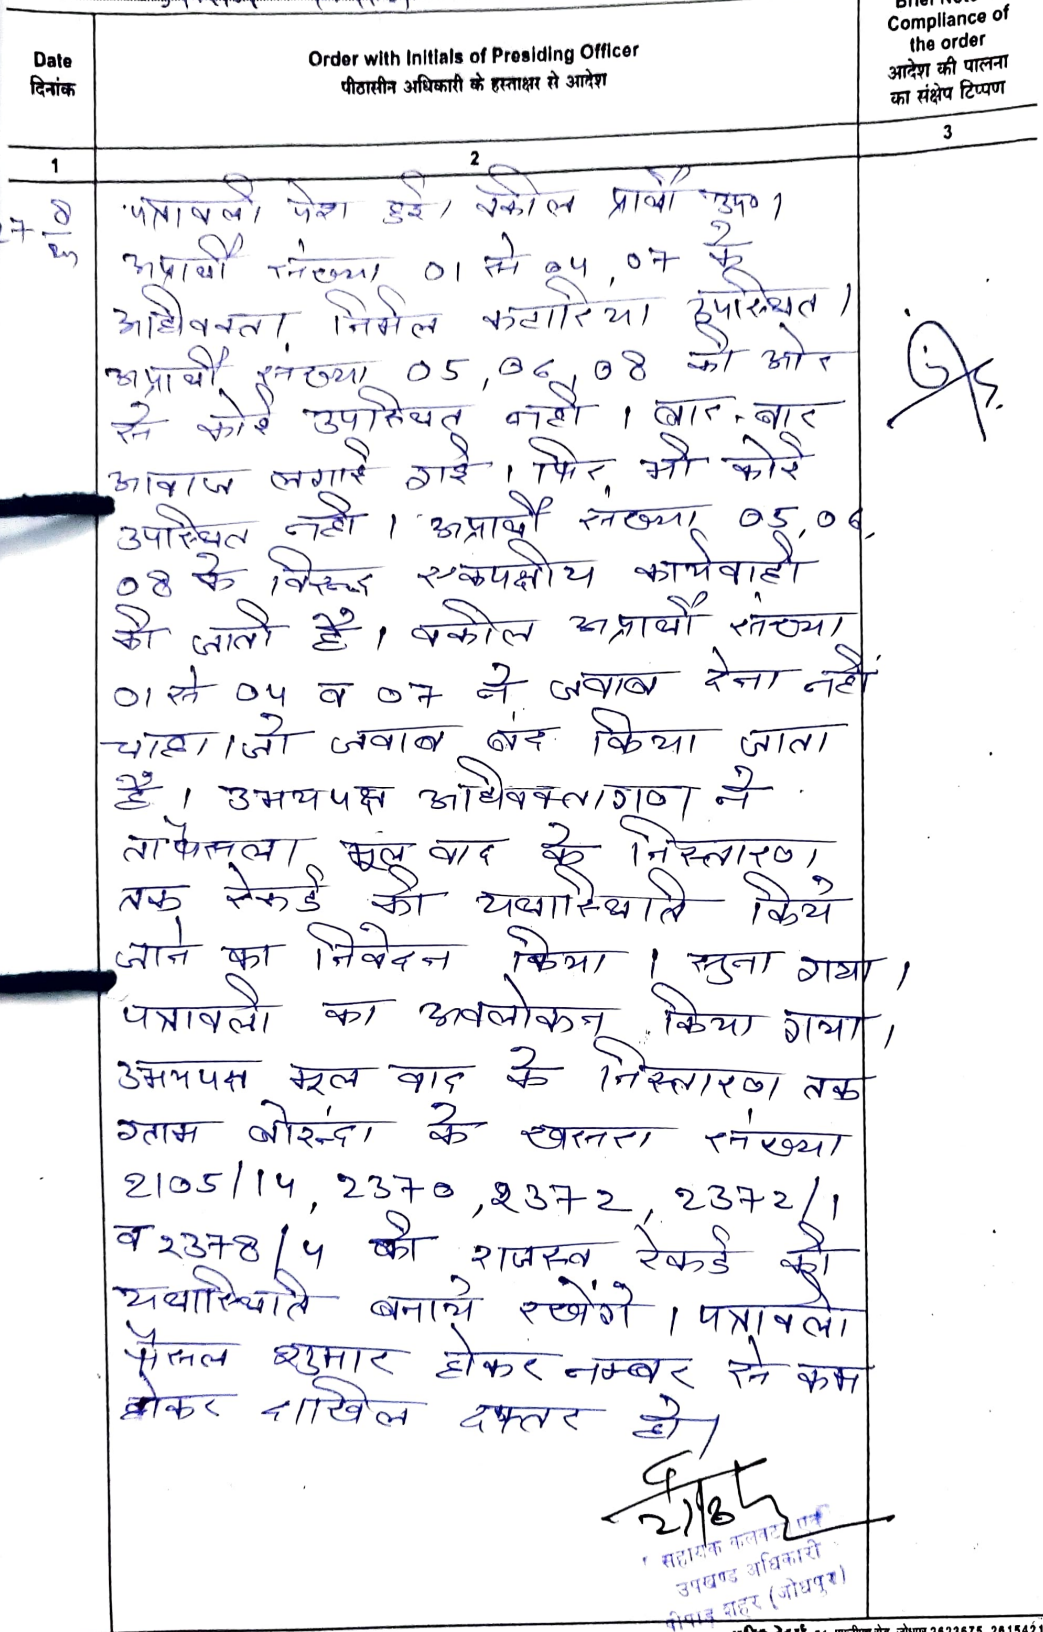 Compliance of
the order
आदेश की पालना
का संक्षेप टिप्पण
Date
दिनांक
Order with Initials of Presiding Officer
पीठासीन अधिकारी के हस्ताक्षर से आदेश
1
2
3
पत्रावली पेश हुई। वकील प्रार्थी उप०।
अप्रार्थी संख्या 01 से 04, 07 के
अधिवक्ता निर्मल कटारिया उपस्थित।
अप्रार्थी संख्या 05, 06, 08 की ओर
से कोई उपस्थित नहीं। बार-बार
आवाज लगाई गई। फिर भी कोई
उपस्थित नही। अप्रार्थी संख्या 05, 06,
08 के विरूद्ध एकपक्षीय कार्यवाही
की जाती है। वकील अप्रार्थी संख्या
01 से 04 व 07 ने जवाब देना नहीं
चाहा। जो जवाब बंद किया जाता
है। उभयपक्ष अधिवक्तागण ने
ताफैसला मूल वाद के निस्तारण
तक रेकर्ड की यथास्थिति किये
जाने का निवेदन किया। सुना गया।
पत्रावली का अवलोकन किया गया।
उभयपक्ष मूल वाद के निस्तारण तक
ग्राम बोरून्दा के खसरा संख्या
2105/14, 2370, 2372, 2372/1
व 2378/4 की राजस्व रेकर्ड की
यथास्थिति बनाये रखेंगे। पत्रावली
फैसल शुमार होकर नम्बर से कम
होकर दाखिल दफ्तर हो।
सहायक कलक्टर एवं
उपखण्ड अधिकारी
पीपाड़ शहर (जोधपुर)